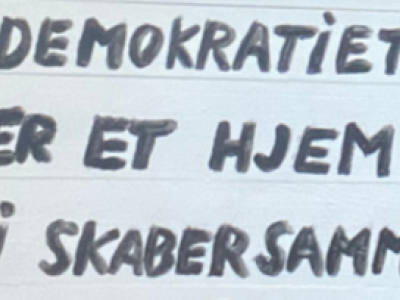 DEMOKRATiET
ER ET HJEM
i SKABER SAMM